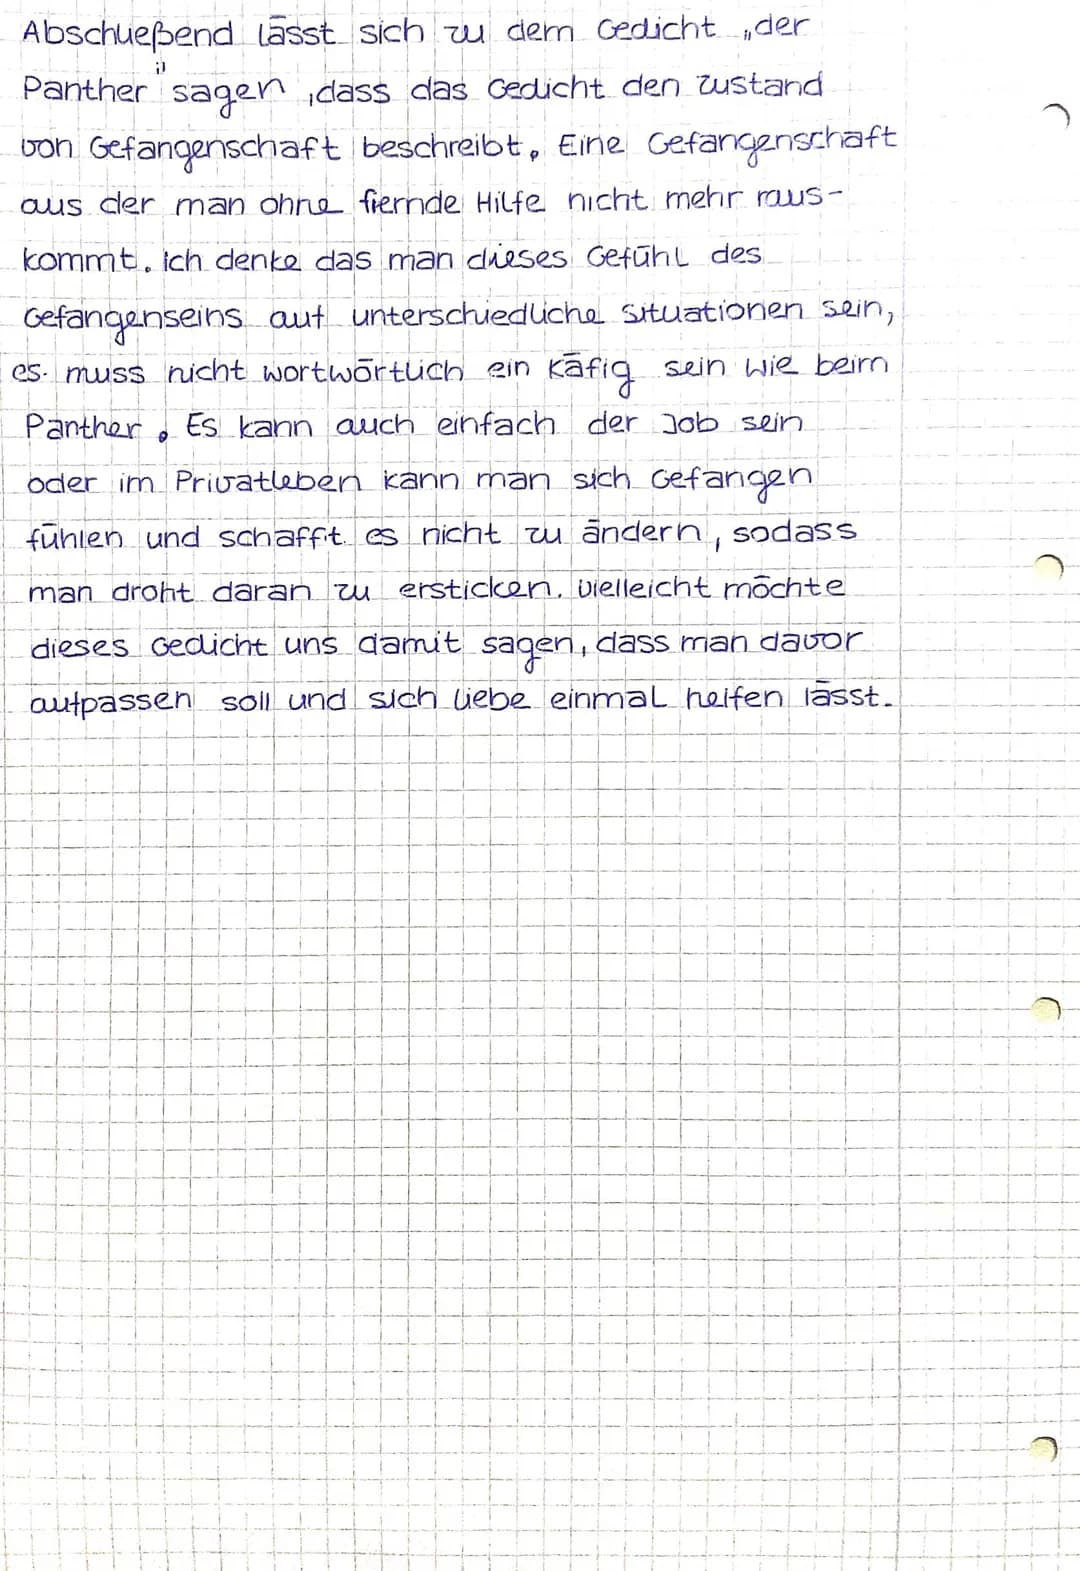 Abschließend lässt sich zu dem Gedicht „der
Panther" sagen, dass das Gedicht den Zustand
von Gefangenschaft beschreibt. Eine Gefangenschaft
aus der man ohne fiernde Hilfe nicht mehr raus-
kommt. ich denke das man dieses Gefühl des
Gefangenseins auf unterschiedliche Situationen sein,
es muss nicht wortwörtlich ein Käfig sein wie beim
Panther. Es kann auch einfach der Job sein
oder im Privatleben kann man sich Gefangen
fühlen und schafft es nicht zu ändern, sodass
man droht daran zu ersticken. Vielleicht möchte
dieses Gedicht uns damit sagen, dass man davor
aufpassen soll und sich liebe einmal helfen lässt.